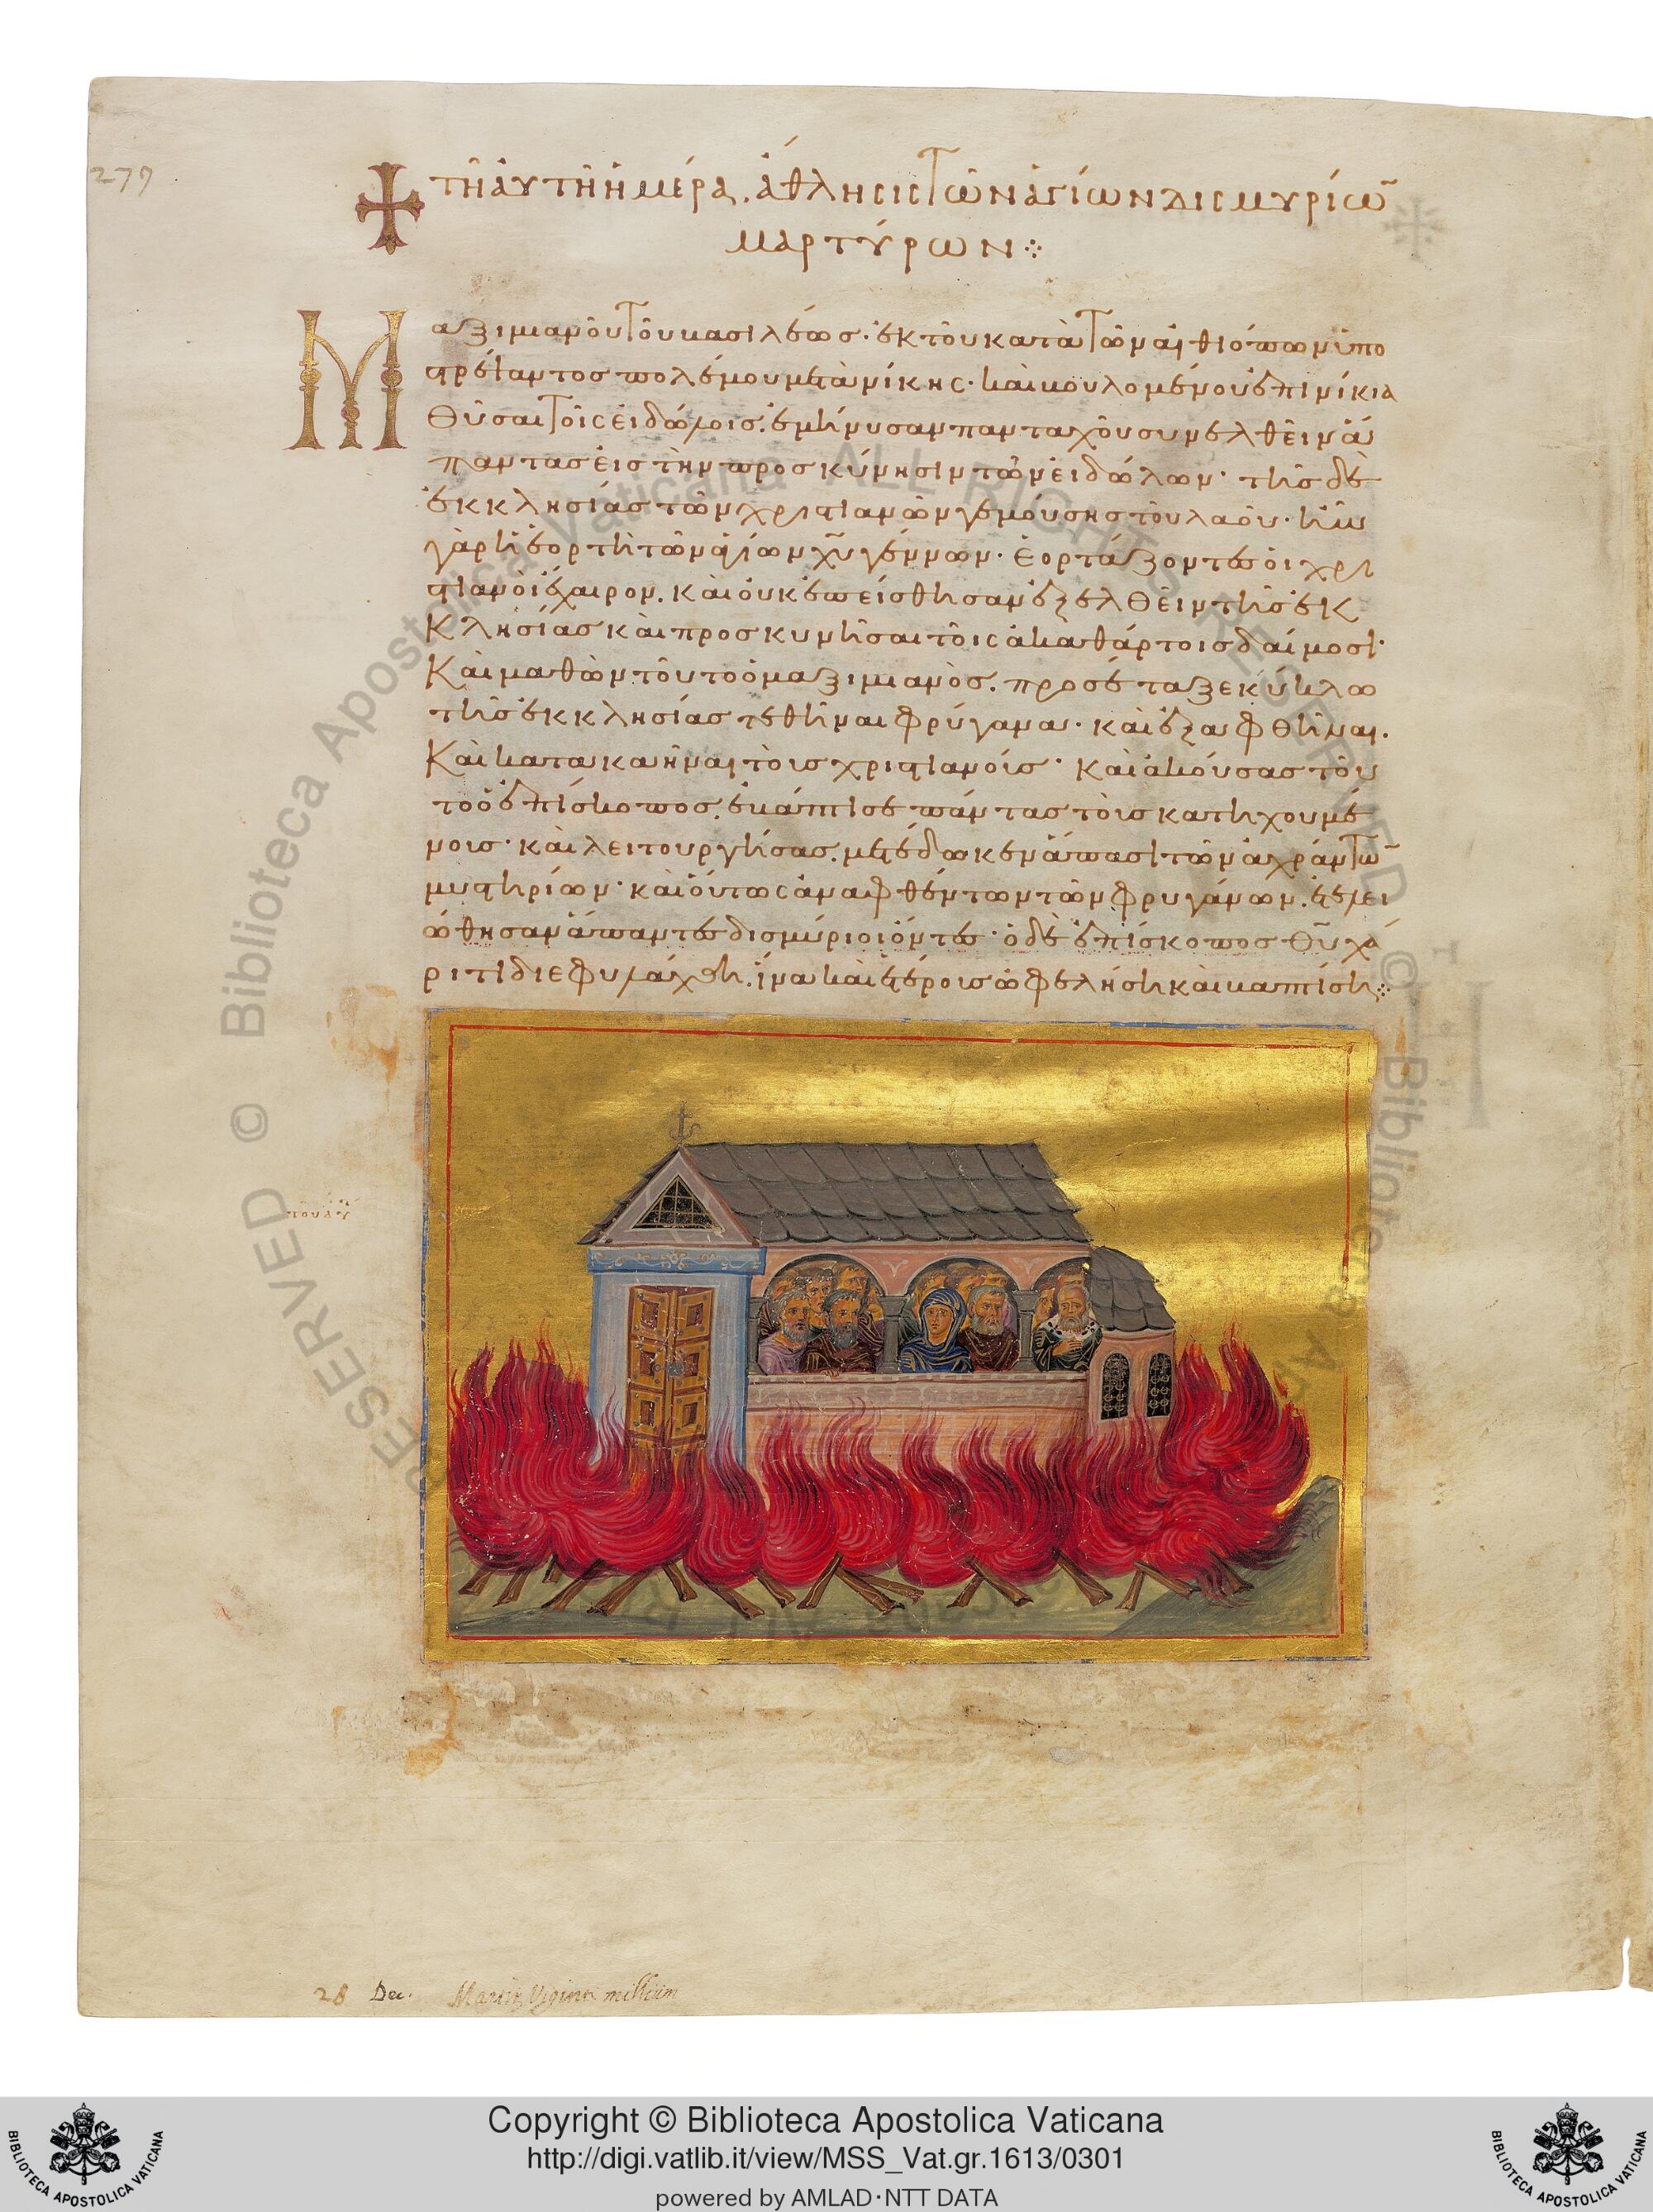 279
τῆ αὐτῆ ἡμέρα. ἄθλησις τῶν ἁγίων δισμυρίω̃
μαρτύρων
Μαξιμιανοῦ τοῦ βασιλέως· ἐκ τοῦ κατὰ τῶν αἰθιόπων ὑπο
στρέψαντος πολέμου μετὰ νίκης· καὶ βουλομένου ἐπινίκια
θῦσαι τοῖς εἰδώλοις. ἐμήνυσαν πανταχοῦ συνελθεῖν ἅ
παντας εἰς τὴν προσκύνησιν τῶν εἰδώλων· τῆς δὲ
ἐκκλησίας τῶν χριστιανῶν γεμούσης τοῦ λαοῦ· ἦν
γὰρ ἡ ἑορτὴ τῶν ἁγίων χῦ γέννων· ἑορτάζοντες οἱ χρι
στιανοὶ ἔχαιρον. καὶ οὐκ ἐπείσθησαν ἐξελθεῖν τῆς ἐκ
κλησίας καὶ προσκυνῆσαι τοῖς ἀκαθάρτοις δαίμοσι·
καὶ μαθὼν τοῦτο ὁ μαξιμιανὸς. προσέταξε κύκλω
τῆς ἐκκλησίας τεθῆναι φρύγανα· καὶ ἐξαφθῆναι.
καὶ κατακαῆναι τοὺς χριστιανούς· καὶ ἀκούσας τοῦ
το ὁ ἐπίσκοπος. ἐβάπτισε πάντας τοὺς κατηχουμέ
νους· καὶ λειτουργήσας. μετέδωκεν ἅπασι τῶν ἀχράντω̃
μυστηρίων· καὶ οὕτως ἀναφθέντων τῶν φρυγάνων. ἐτελει
ώθησαν ἅπαντες δισμύριοι ὄντες· ὁ δὲ ἐπίσκοπος θῦ χά
ριτι διεφυλάχθη. ἵνα καὶ ἑτέρους ὠφελήση καὶ βαπτίση
28 Dec. Martyr. Viginti millium
Copyright © Biblioteca Apostolica Vaticana
http://digi.vatlib.it/view/MSS_Vat.gr.1613/0301
powered by AMLAD·NTT DATA
BIBLIOTECA APOSTOLICA VATICANA
BIBLIOTECA APOSTOLICA VATICANA